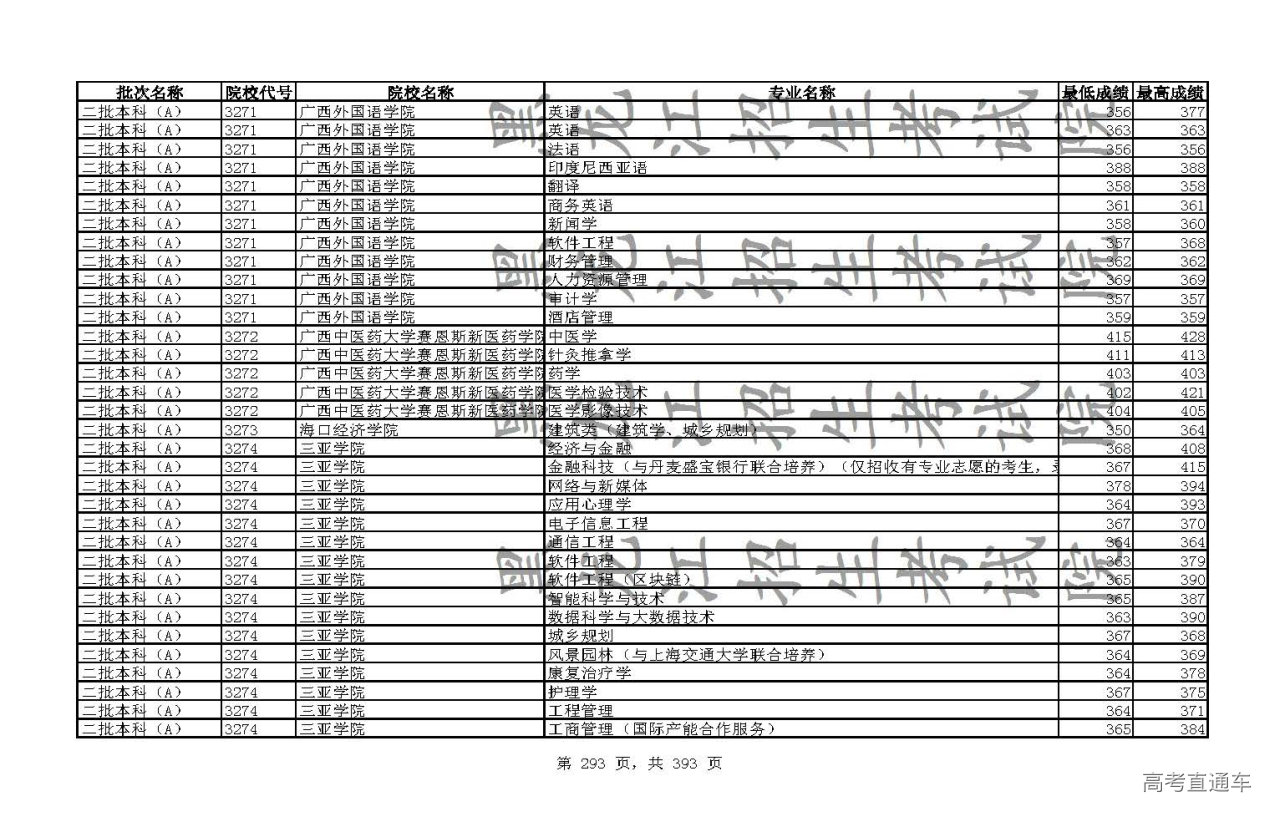 批次名称 院校代号 院校名称 专业名称 最低成绩 最高成绩
二批本科（A） 3271 广西外国语学院 英语 356 377
二批本科（A） 3271 广西外国语学院 英语 363 363
二批本科（A） 3271 广西外国语学院 法语 356 356
二批本科（A） 3271 广西外国语学院 印度尼西亚语 388 388
二批本科（A） 3271 广西外国语学院 翻译 358 358
二批本科（A） 3271 广西外国语学院 商务英语 361 361
二批本科（A） 3271 广西外国语学院 新闻学 358 360
二批本科（A） 3271 广西外国语学院 软件工程 357 368
二批本科（A） 3271 广西外国语学院 财务管理 362 362
二批本科（A） 3271 广西外国语学院 人力资源管理 369 369
二批本科（A） 3271 广西外国语学院 审计学 357 357
二批本科（A） 3271 广西外国语学院 酒店管理 359 359
二批本科（A） 3272 广西中医药大学赛恩斯新医药学院 中医学 415 428
二批本科（A） 3272 广西中医药大学赛恩斯新医药学院 针灸推拿学 411 413
二批本科（A） 3272 广西中医药大学赛恩斯新医药学院 药学 403 403
二批本科（A） 3272 广西中医药大学赛恩斯新医药学院 医学检验技术 402 421
二批本科（A） 3272 广西中医药大学赛恩斯新医药学院 医学影像技术 404 405
二批本科（A） 3273 海口经济学院 建筑类（建筑学、城乡规划） 350 364
二批本科（A） 3274 三亚学院 经济与金融 368 408
二批本科（A） 3274 三亚学院 金融科技（与丹麦盛宝银行联合培养）（仅招收有专业志愿的考生， 367 415
二批本科（A） 3274 三亚学院 网络与新媒体 378 394
二批本科（A） 3274 三亚学院 应用心理学 364 393
二批本科（A） 3274 三亚学院 电子信息工程 367 370
二批本科（A） 3274 三亚学院 通信工程 364 364
二批本科（A） 3274 三亚学院 软件工程 363 379
二批本科（A） 3274 三亚学院 软件工程（区块链） 365 390
二批本科（A） 3274 三亚学院 智能科学与技术 365 387
二批本科（A） 3274 三亚学院 数据科学与大数据技术 363 390
二批本科（A） 3274 三亚学院 城乡规划 367 368
二批本科（A） 3274 三亚学院 风景园林（与上海交通大学联合培养） 364 369
二批本科（A） 3274 三亚学院 康复治疗学 364 378
二批本科（A） 3274 三亚学院 护理学 367 375
二批本科（A） 3274 三亚学院 工程管理 364 371
二批本科（A） 3274 三亚学院 工商管理（国际产能合作服务） 365 384
黑龙江招生考试院
黑龙江招生考试院
黑龙江招生考试院
黑龙江招生考试院
第 293 页，共 393 页
高考直通车